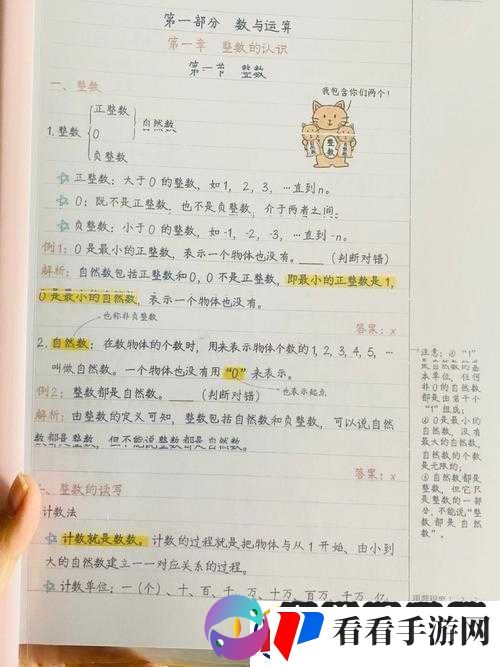 第一部分 数与运算
第一章 整数的认识
第一节 整数
一、整数
我包含你们两个!
正整数
1.整数 0 自然数
负整数
整数
正整数:大于0的整数,如1,2,3,…直到n。
0:既不是正整数,也不是负整数,介于两者之间;
负整数:小于0的整数,如-1,-2,-3,…直到-n。
例1:0是最小的正整数,表示一个物体也没有。____(判断对错)
解析:自然数包括正整数和0,0不是正整数,即最小的正整数是1,
0是最小的自然数,表示一个物体也没有。
也称非负整数
答案:x
2.自然数:在数物体的个数时,用来表示物体个数的1,2,3,4,5,…
叫做自然数。一个物体也没有用“0”来表示。
也表示起点
例2:整数都是自然数。____(判断对错)
解析:由整数的定义可知,整数包括自然数和负整数,可以说自然
数都是整数,但不能说整数都是自然数。
答案:x
注意:①“1”
自然数的基
本单位,任何
非0的自然数
都是由若干个
“1”组成;
②0是最小的
自然数,没有
最大的自然数,
自然数的个数
是无限的;
③自然数都是
整数,但它只
是整数的一部
分,不能说“整
数都是自然
数”。
二、整数的读写
计数法
计数就是数数。计数的过程就是把物体与从1开始、由小到
大的自然数建立一一对应关系的过程。
计数单位:一(个)、十、百、千、万、十万、百万、千万、亿、
看看手游网